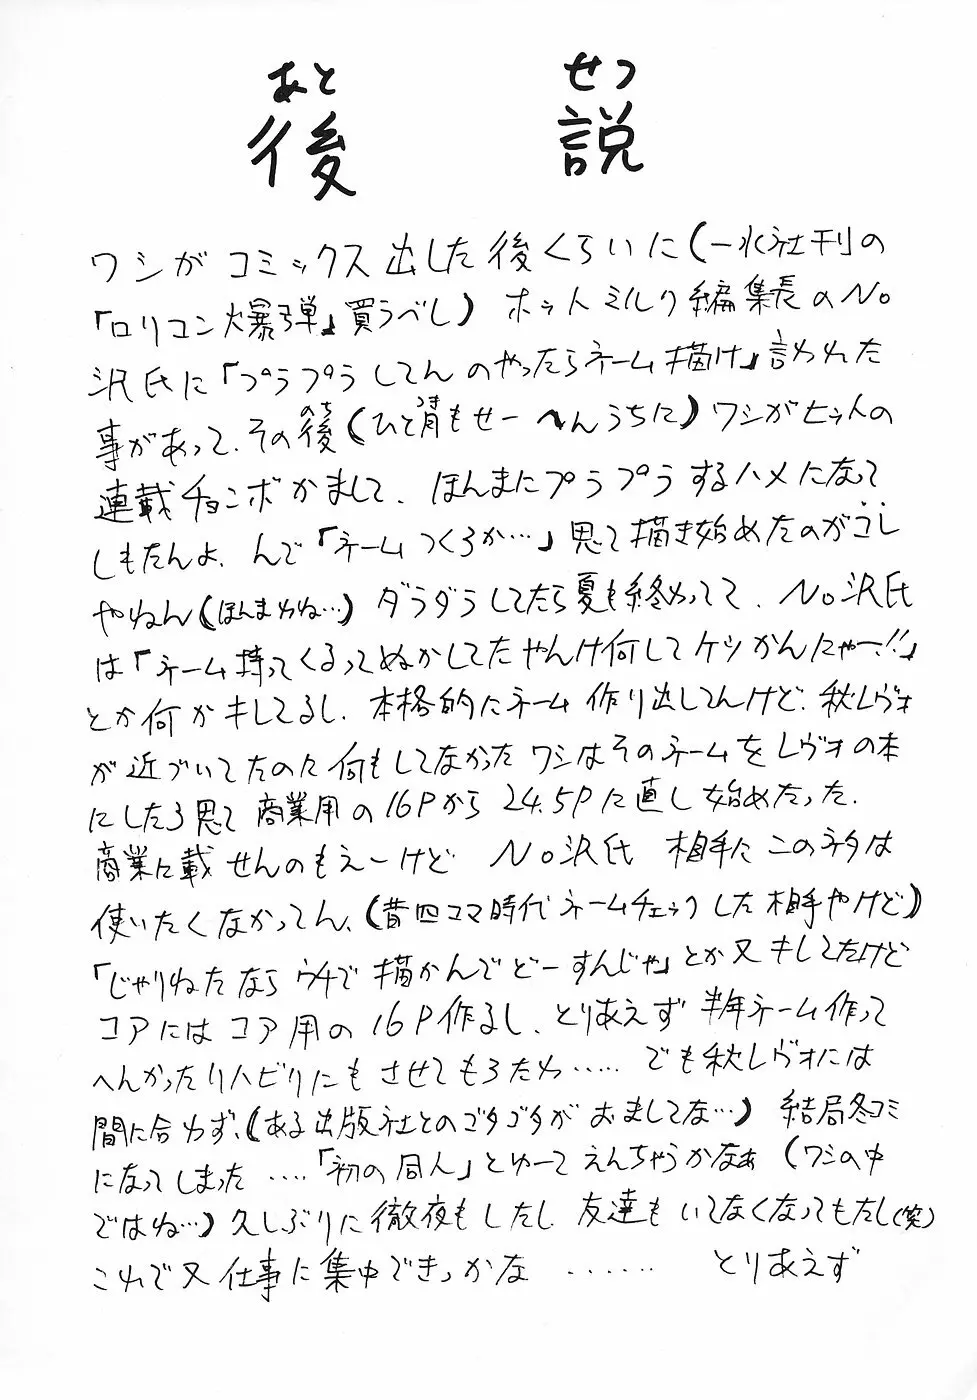 あと せつ
後 説
ワシがコミックス出した後くらいに(一水社刊の
「ロリコン爆弾」買うべし) ホットミルク編集長のNo
沢氏に「プラプラしてんのやったらネーム描け」言われた
事があって、その後(のち)(ひと月(つき)もせーへんうちに)ワシがヒットの
連載チョンボかまして、ほんまにプラプラするハメになって
しもたんよ、んで「ネームつくろか…」思て描き始めたのがコレ
やねん(ほんまかね…) ダラダラしてたら夏も終わってて、No沢氏
は「ネーム持ってくるってぬかしてたやんけ何してケツかんにゃー!!」
とか何かキしてるし、本格的にネーム作り出してんけど、秋レヴォ
が近づいてたのに何もしてなかったワシはそのネームをレヴォの本
にしたろ思て商業用の16Pから24.5Pに直し始めたった.
商業に載せんのもえーけど No沢氏 相手にこのネタは
使いたくなかってん、(昔四コマ時代ネームチェックした相手やけど)
「じゃりねたならウチで描かんでどーすんじゃ」とか又キしてたけど
コアにはコア用の16P作るし、とりあえず半年ネーム作って
へんかったリハビリにもさせてもろたわ…… でも秋レヴォには
間に合わず、(ある出版社とのゴタゴタがおましてな…) 結局冬コミ
になってしまった ….「初の同人」とゆーてえんちゃうかなぁ (ワシの中
ではね…) 久しぶりに徹夜もしたし 友達もいてなくなってもたし(笑)
これで又仕事に集中できっかな ....... とりあえず